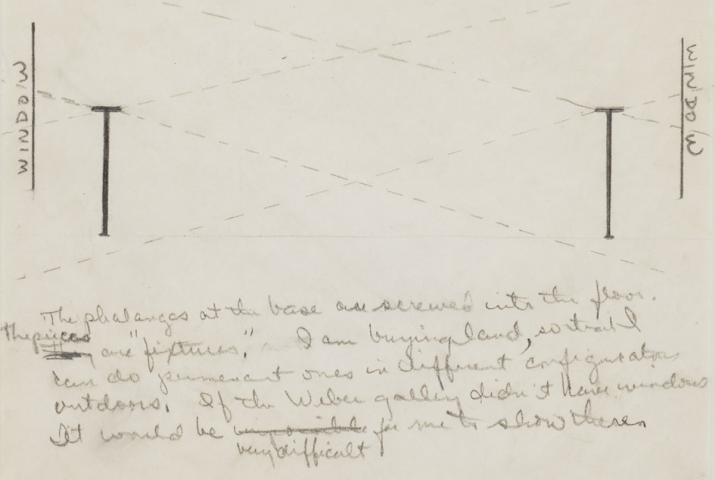 WINDOW
WINDOW
The phalanges at the base are screwed into the floor.
The pieces are "fixtures." I am buying land, so that I
can do permenant ones in different configurations
outdoors. If the Weber gallery didn't have windows
It would be for me to show there
very difficult